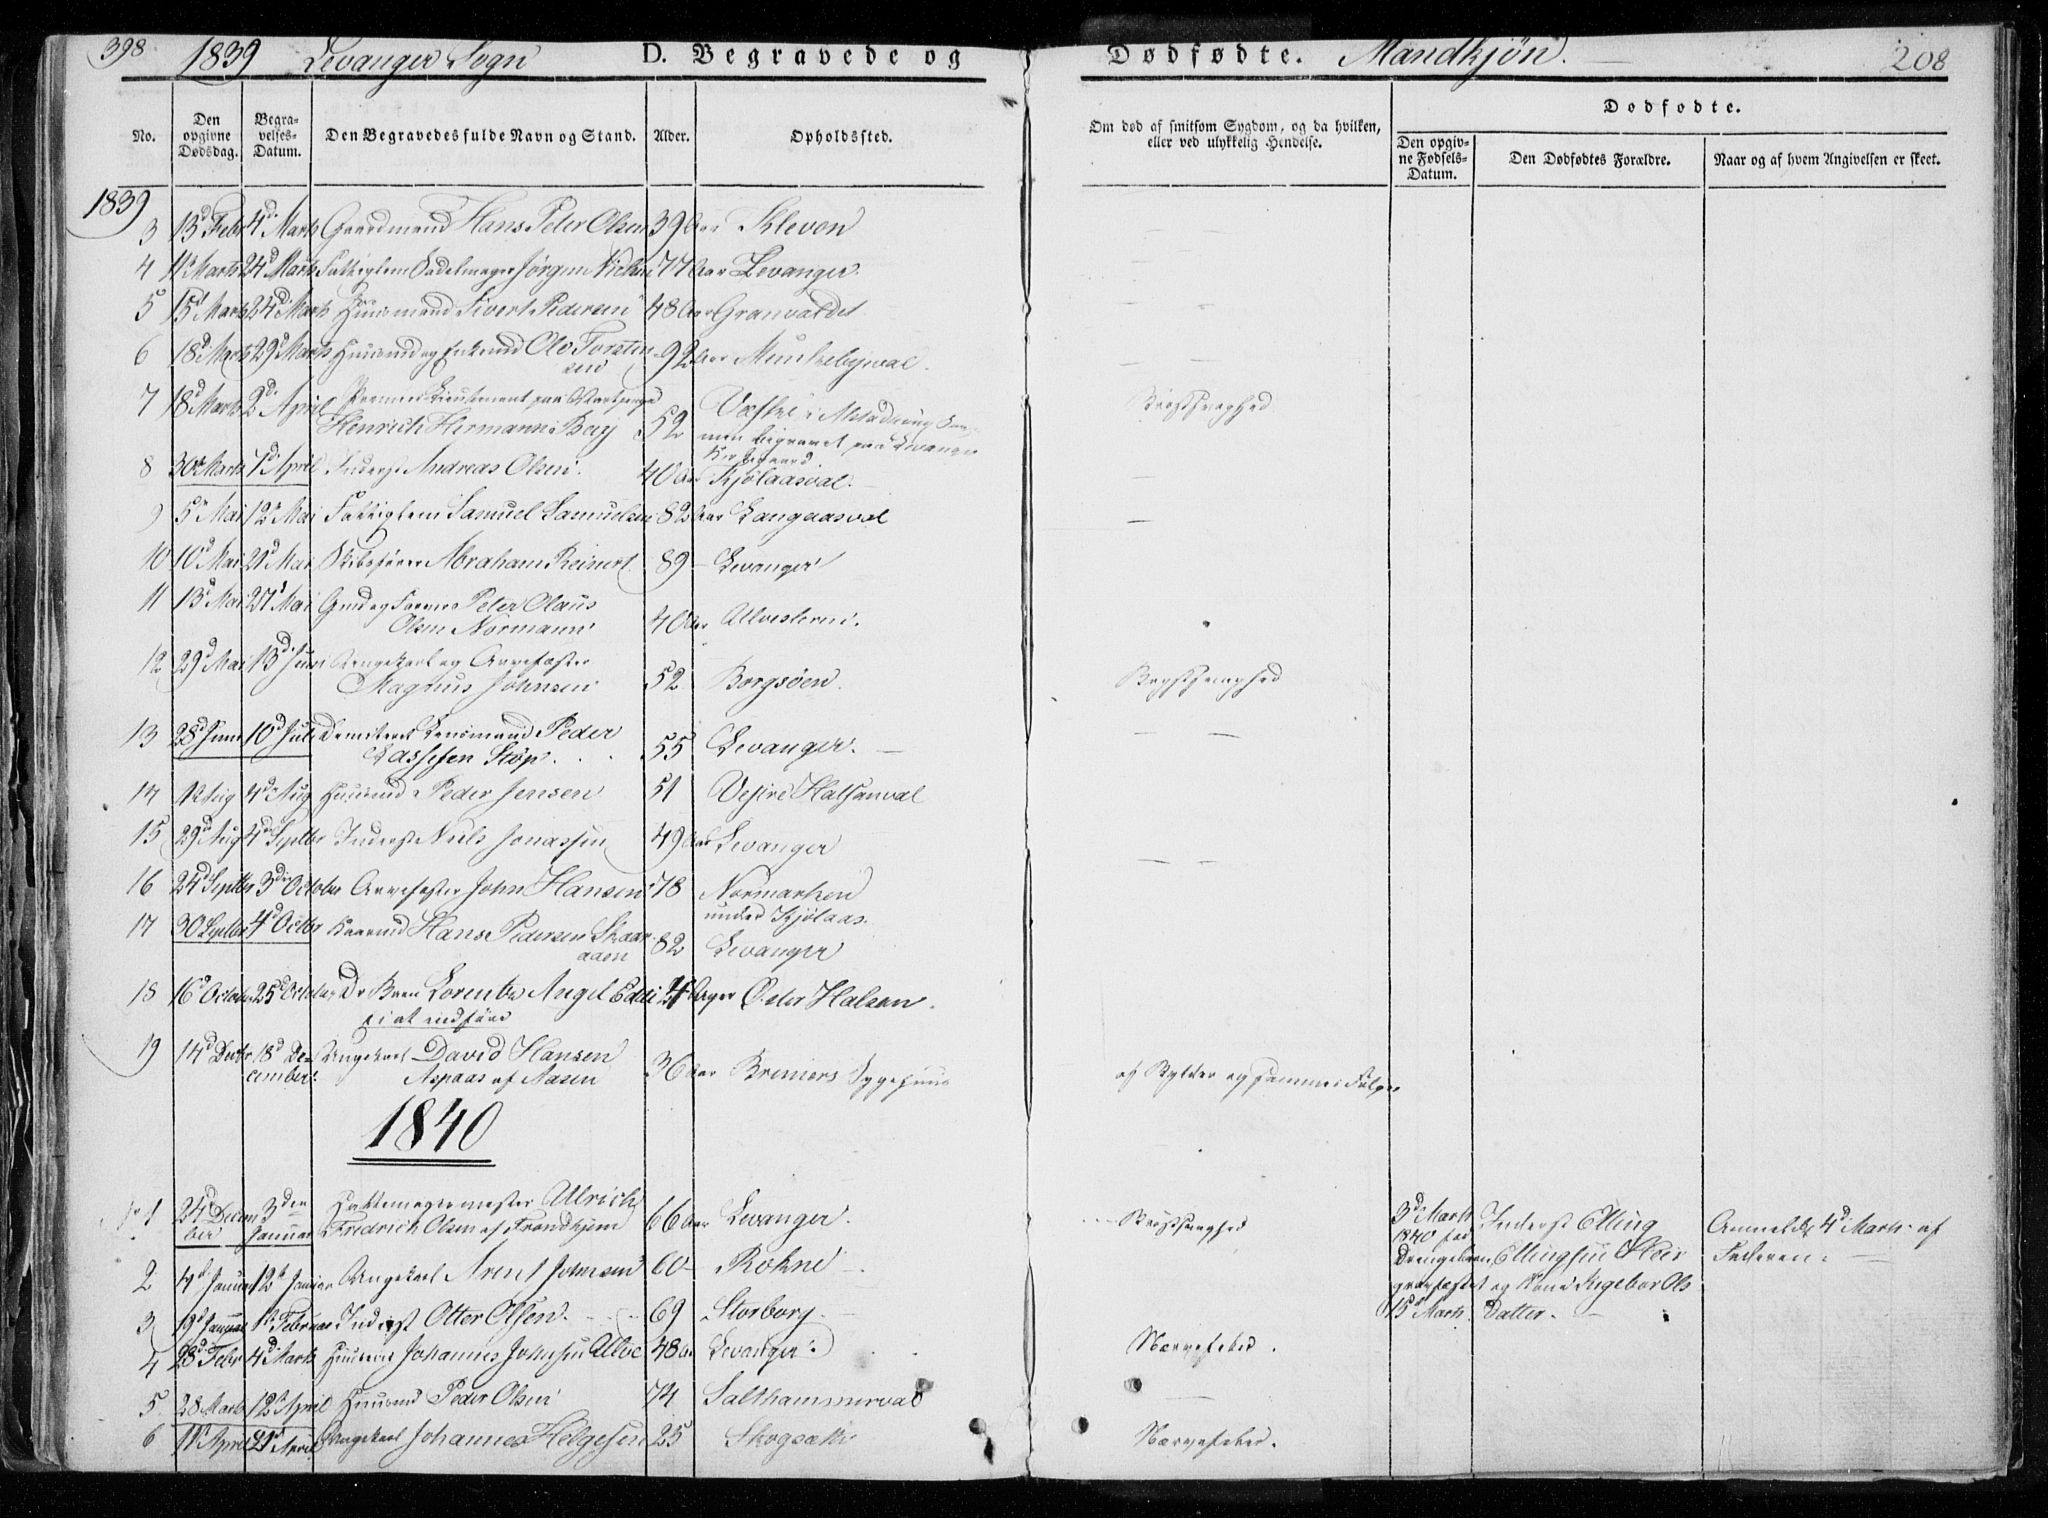 398 1839 Levanger Sogn D. Begravede og Dødfødte. Mandkjøn. 208
No. Den opgivne Dødsdag. Begravelses-Datum. Den Begravedes fulde Navn og Stand. Alder. Opholdssted. Om død af smitsom Sygdom, og da hvilken, eller ved ulykkelig Hendelse. Dødfødte. Den opgivne Fødsels-Datum. Den Dødfødtes Forældre. Naar og af hvem Angivelsen er skeet.
1839
3 13d Febr 4d Marts Gaardmand Hans Peter Olsen 39 Aar Kleven
4 11 Marts 24d Marts Fattiglem Sadelmager Jørgen 77 Aar Levanger.
5 15d Marts 24d Marts Huusmand Sivert Pedersen 48 Aar Granvaldet
6 18d Marts 29d Marts Huusmd og Enkemd Ole Torsten
sen 92 Aar Munkebyval.
7 18d Marts 2d April Premier Lieutenant paa
Henrich Hermann Berg 52
men begravet paa Levanger
Kirkegaard
Brystsvaghed
8 30te Marts 7d April Inderst Andreas Olsen. 40 Aar Kjølaasval.
9 5te Mai 12te Mai Fattiglem Samuel Samuelsen 82 Aar Langaasval
10 10d Mai 21d Mai Skibsfører Abraham Reinert 89 Levanger
11 13d Mai 27d Mai Peter Olaus
Olsen Normann 40 Aar
12 29d Mai 13d Juni Ungekarl og
Magnus Johnsen 52 Borgsöen.
Brystsvaghed
13 28d Juni 10d Juli Lensmand Peder
Lassesen Støp. 55 Levanger.
14 1 Aug 4d Aug Huusmd Peder Jensen 51 Vestre Halsanval
15 29d Aug 4d Septbr Inderst Niels Jonassen 49 Aar Levanger
16 24d Septbr 3die October John Hansen 78 Normarken
under Kjølaas.
17 30 Septbr 4d Octbr Hans Pedersen Skaan
aaen 82 Levanger
18 16d October 25d Dr Barn Lorents Angel 4 Uger Øster Halsan.
19 14d Decbr 18d De-
cember. Ungekarl David Hansen
Aspaas af Aasen 36 Aar Bremers Sygehuus
af Bylder og sammes Følger
1840
1 24d Decem
ber 3den
Januar Hattemagermester Ulrich
Fredrich Olsen af Trondhjem 66 Aar Levanger.
Brystsvaghed
3d Marts
1840 fød
Drengebarn
15d Marts Inderst Elling
Ellingsen
og Kone Ingebor Ols
Datter. Anmeldt 4d Marts af
Faderen.
2 4d Januar 12te Januar Ungekarl Arent Johnsen 60 Rohne
3 19d Januar 1te Februar Inderst Otter Olsen. 69 Storborg.
4 28d Febr 4d Marts Johannes Johnsen 48 Aar Levanger.
Nervefeber.
5 28 Marts 12te April Huusmd Peder Olsen 74 Salthammerval
6 11d April 21d April Ungekarl Johannes Helgesen 25
Nervefeber.